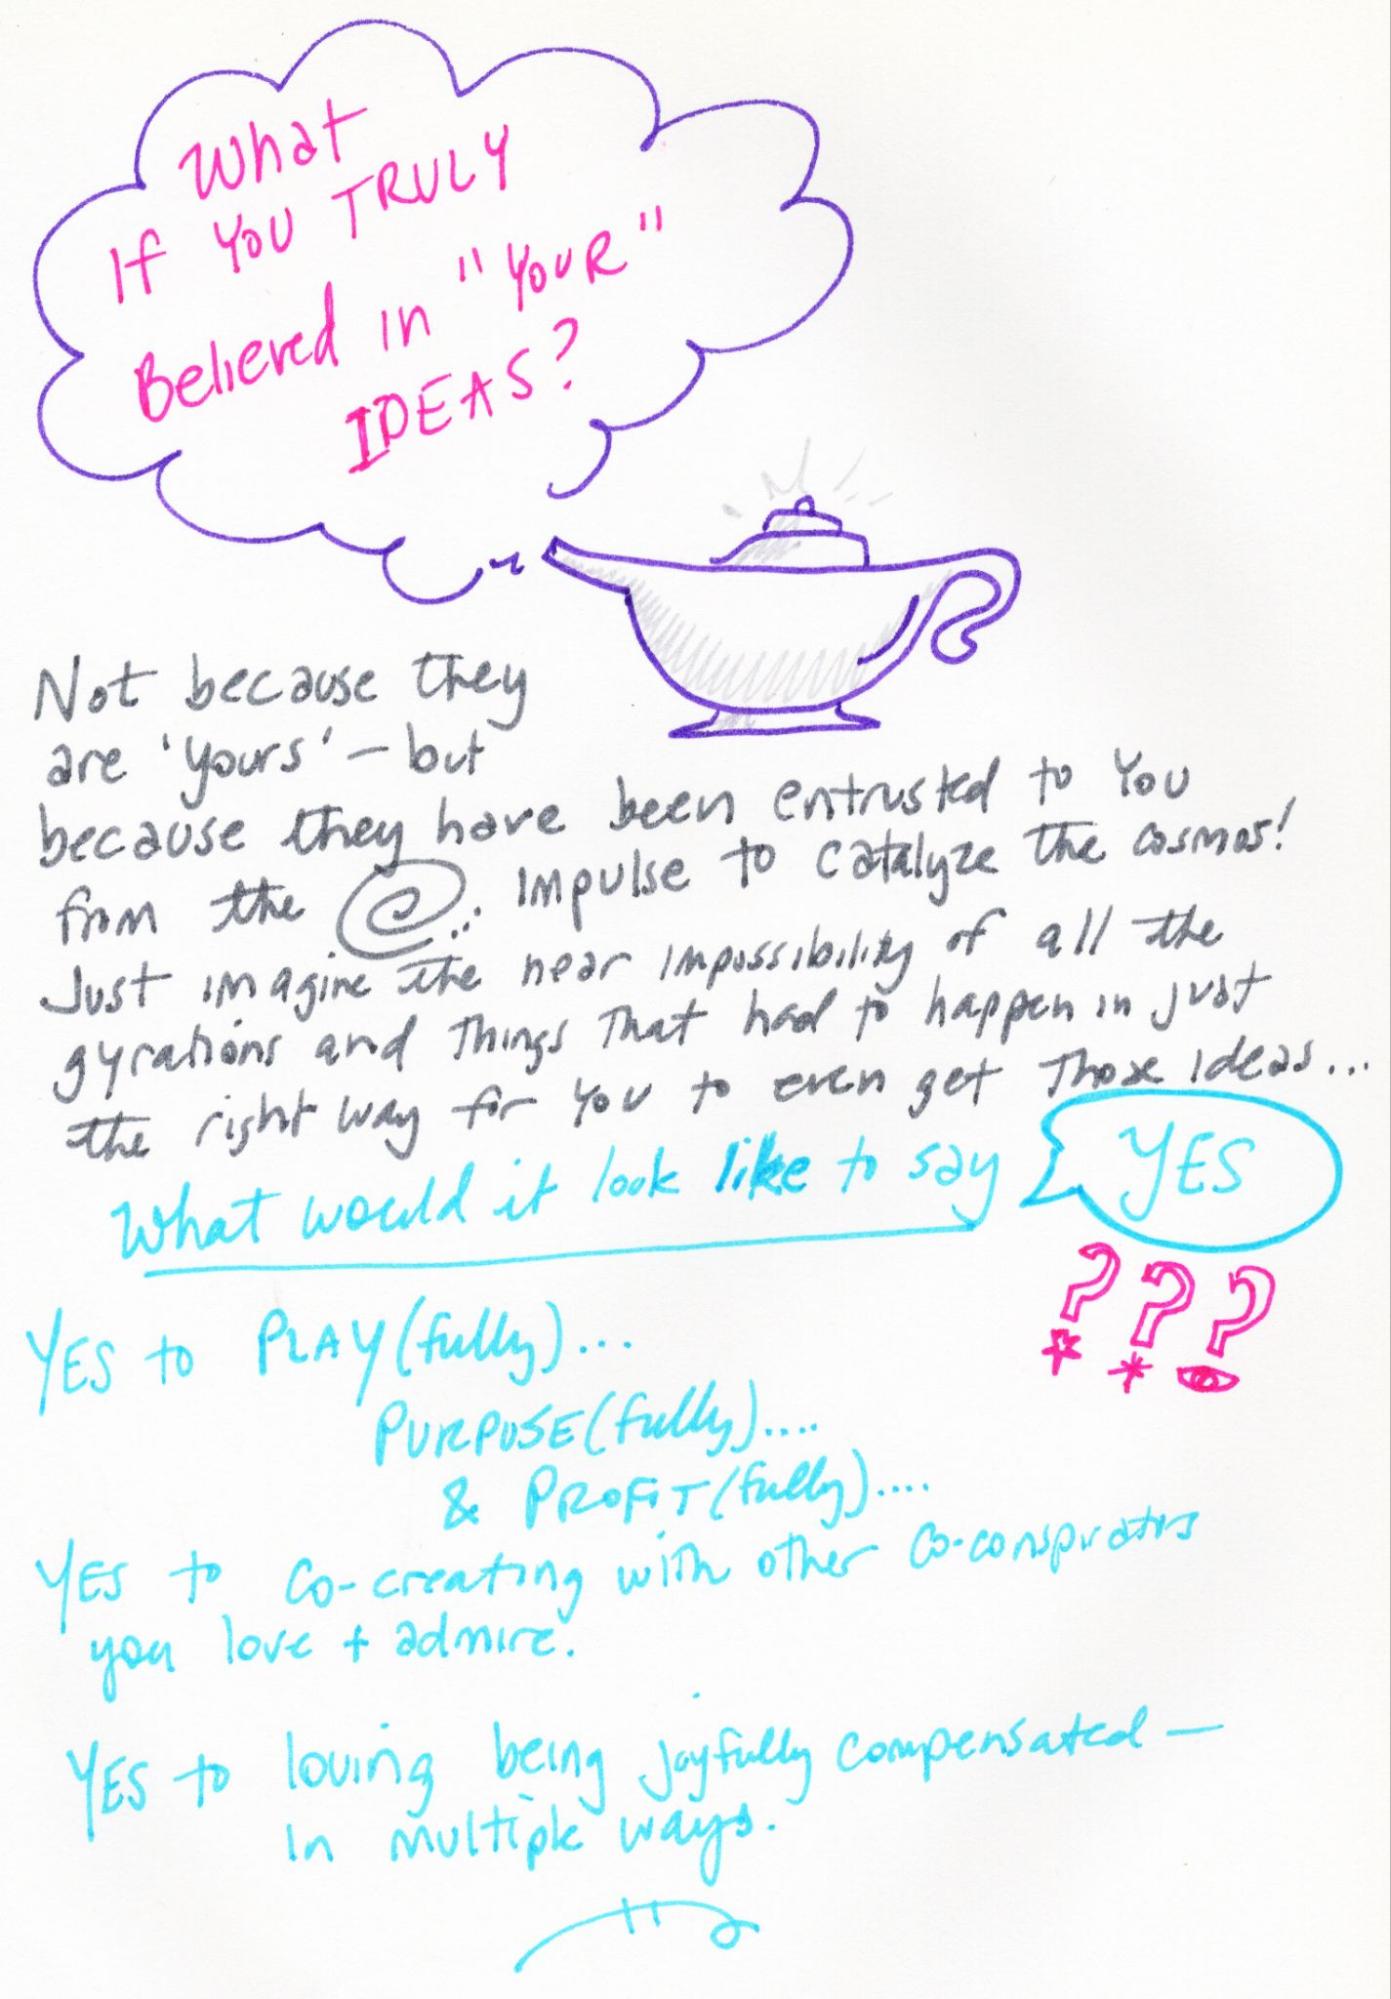 What
If YOU TRULY
Believed in "YOUR"
IDEAS?
Not because they
are 'yours' – but
because they have been entrusted to You
from the impulse to catalyze the cosmos!
Just imagine the near impossibility of all the
gyrations and things that had to happen in just
the right way for You to even get those ideas...
What would it look like to say
YES
???
YES to PLAY(fully)...
PURPOSE(fully)....
& PROFIT(fully)....
YES to Co-creating with other Co-conspirators
you love + admire.
YES to loving being joyfully compensated —
in multiple ways.